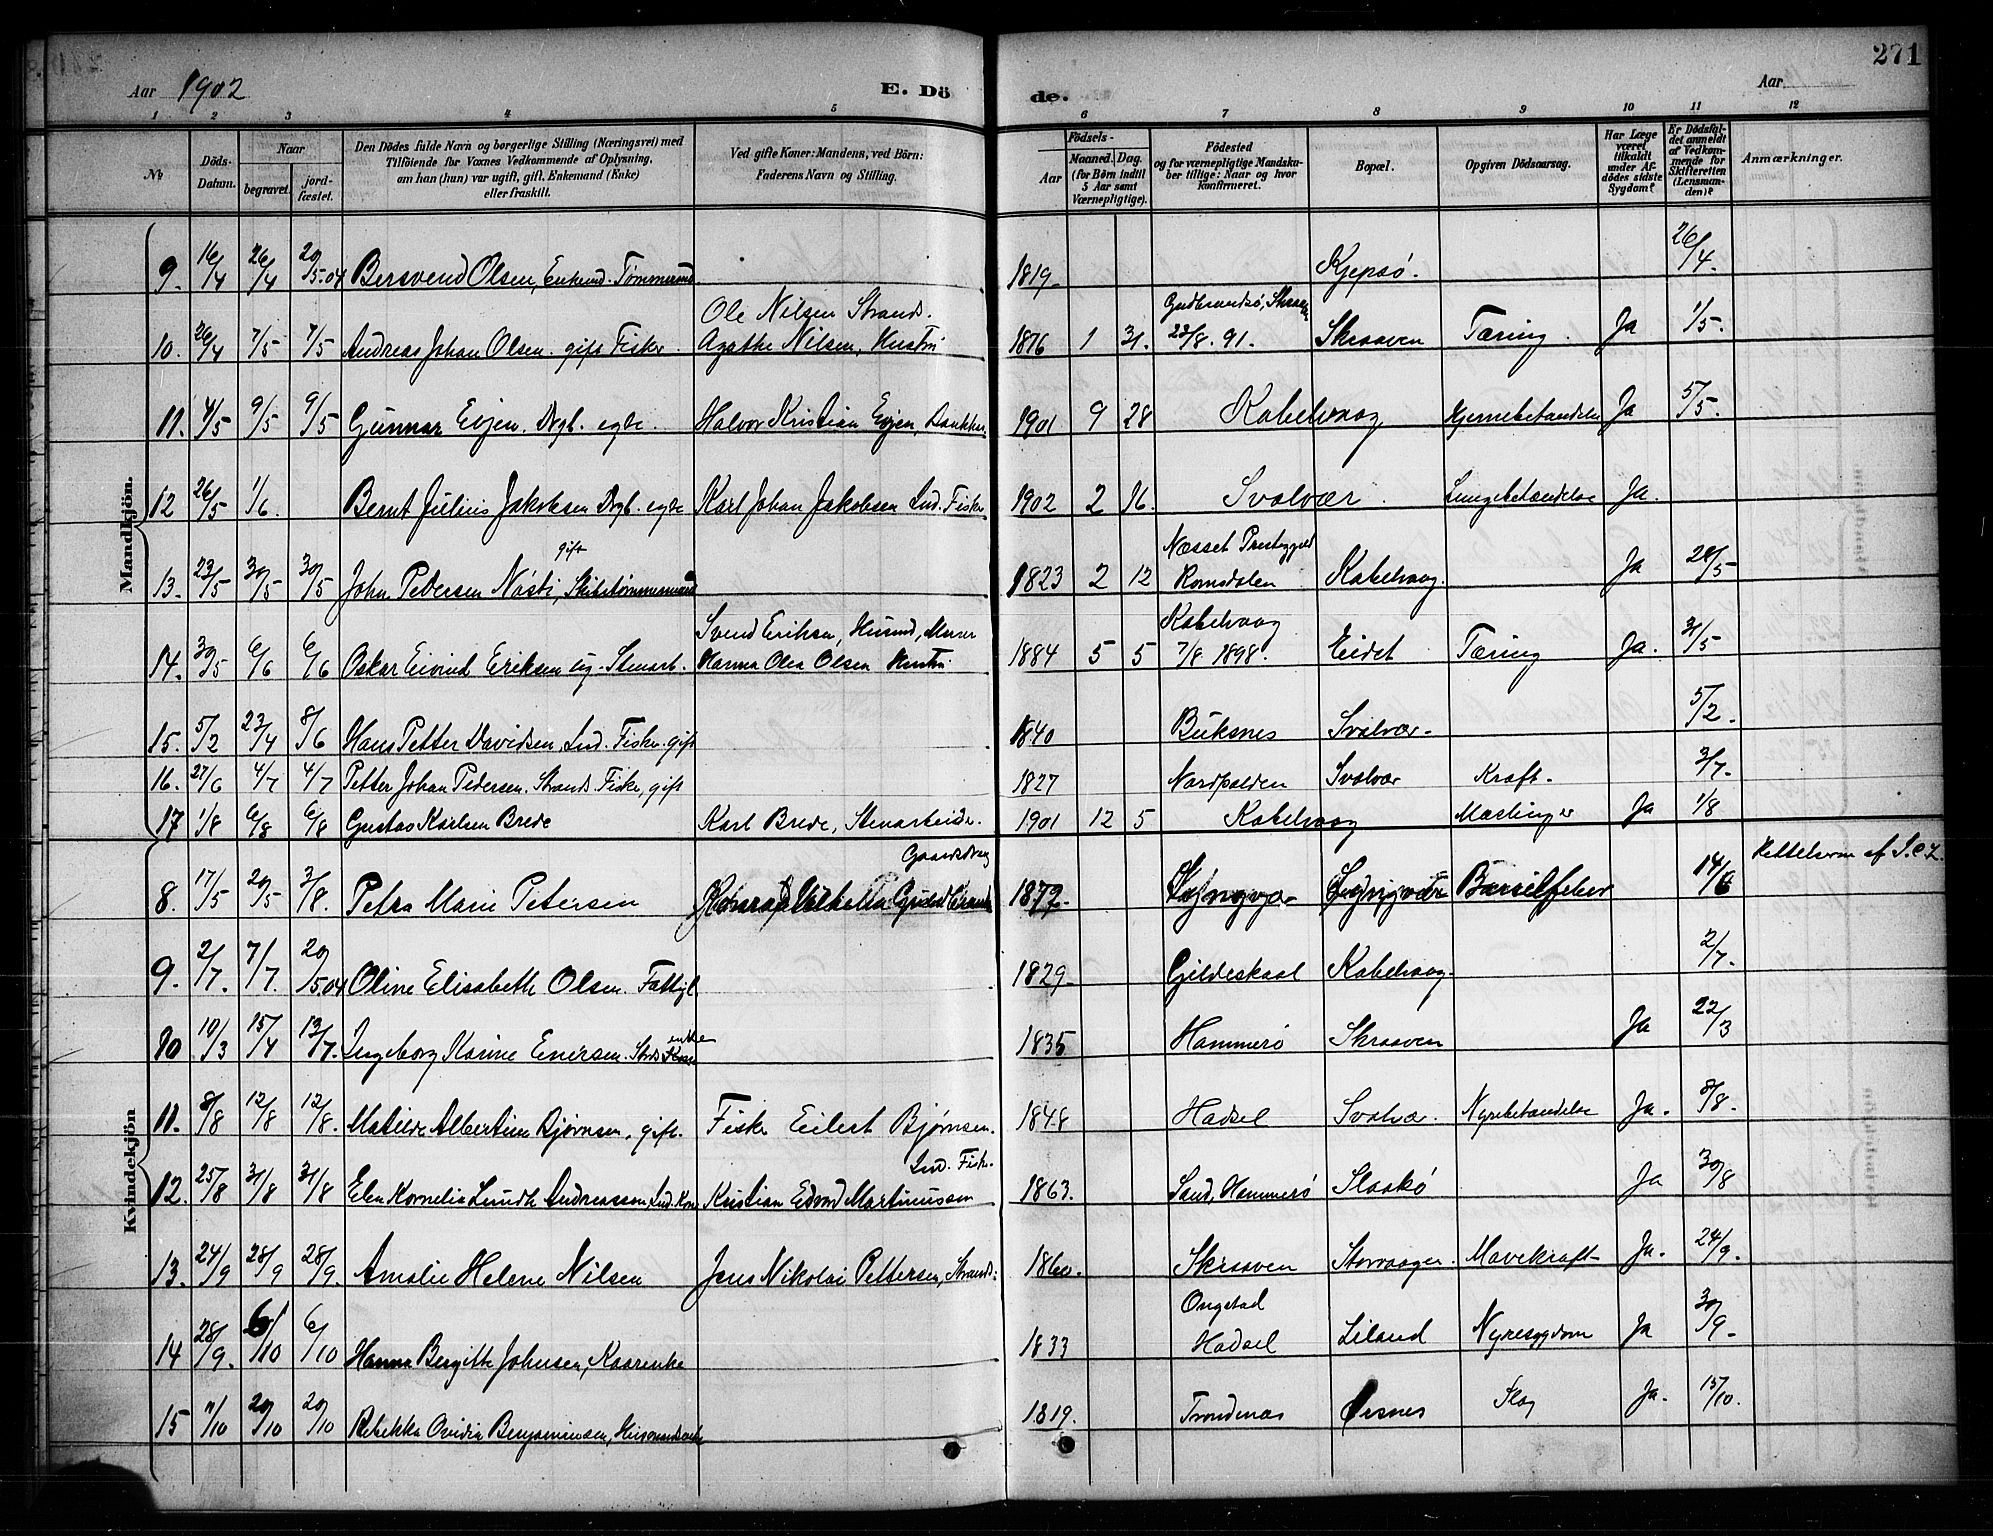 271
Aar 1902 E. Dö de. Aar
1 2 3 4 5 6 7 8 9 10 11 12
№
Döds-Datum.
Naar begravet. jordfæstet.
Den Dödes fulde Navn og borgerlige Stilling (Næringsvei) med Tilföiende for Voxnes Vedkommende af Oplysning, om han (hun) var ugift, gift, Enkemand (Enke) eller fraskilt.
Ved gifte Koner: Mandens, ved Börn: Faderens Navn og Stilling.
Födsels- Aar Maaned. Dag. (for Börn indtil 5 Aar samt Værnepligtige).
Födested og for værnepligtige Mandskaber tillige: Naar og hvor konfirmeret.
Bopæl.
Opgiven Dödsaarsag.
Har Læge været tilkaldt under Afdödes sidste Sygdom?
Er Dödsfaldet anmeldt af Vedkommende for Skifteretten (Lensmanden)?
Anmærkninger.
Mandkjön.
9. 16/4 26/4 20/5.04 Bersvend Olsen, Enkemd. Tømmermd. 1819 Kjepsø. 26/4.
10. 26/4 7/5 7/5 Andreas Johan Olsen. gift Fisker. Ole Nilsen Strands. Agathe Nilsen, Hustru 1876 1 31. 23/8. 91. Skraaven Tæring. Ja 1/5.
11. 4/5 9/5 9/5 Gunnar Evjen. Dvgt. egte. Halvor Kristian Evjen, 1901 9 28 Kabelvaag Hjernebetændelse Ja 5/5.
12 26/5 1/6. Bernt Julius Jakobsen Dvgt. egte Karl Johan Jakobsen Ind. Fisker 1902 2 16. Svolvær. Lungebetændelse Ja.
13. 23/5 30/5 30/5 John Pedersen Nösti, gift Skibstømmermand 1823 2 12 Næsset Prestegjeld Romsdalen Kabelvaag. Ja 28/5
14. 30/5 6/6 6/6 Oskar Eivind Eriksen ug. Stenarb. Svend Eriksen, Husmd, Murer Hanna Olea Olsen Hustru 1884 5 5 Kabelvaag 7/8 1898. Eidet Tæring Ja. 31/5
15. 5/2 23/4 8/6 Hans Petter Davidsen, Ind. Fisker. gift 1840 Buksnes Svolvær. 5/2.
16. 27/6 4/7 4/7 Petter Johan Pedersen. Strands. Fisker, gift 1827 Nordfolden Svolvær Kræft. 3/7.
17 1/8 6/8 6/8 Gustav Karlsen Brede Karl Brede, Stenarbeider. 1901 12 5 Kabelvaag Mæslinger Ja 1/8
Kvindekjön
8. 17/5 20/5 3/8. Petra Marie Petersen Gaardsdreng 1872. Barselfeber 14/6
9. 2/7. 7/7. 20/5.04 Oline Elisabeth Olsen. Fattigl. 1829. Gildeskaal Kabelvaag. 2/7.
10 19/3 15/4 13/7. Ingeborg Karine Enersen. Strds enke 1835 Hammerø Skraaven Ja 22/3
11. 8/8 12/8 12/8. Matilde Albertine Bjørnsen, gift. Fisker Eilert Bjørnsen. 1848 Hadsel Svolvær. Nyrebetændelse Ja. 8/8.
12. 25/8 31/8 31/8 Elen Kornelia Lundk Andreassen, Ind. Kone Ind. Fisker. Kristian Edvard Martinussen 1863. Sand, Hammerø Slaakø Ja 30/8
13. 24/9 28/9 28/9. Amalie Helene Nilsen Jens Nikolai Pettersen, Strands: 1860. Skraaven Storvaagen. Mavekræft Ja. 24/9.
14 28/9. 6/10 6/10 Hanna Bergitte Johnsen, Kaarenke 1833 Ongstad Hadsel Liland Nyresygdom Ja 30/9.
15 7/10 20/10 20/10 Rebekka Ovidia Benjaminsen, Husmandsenke 1819. Trondenæs Ørsnes Slag Ja. 15/10.